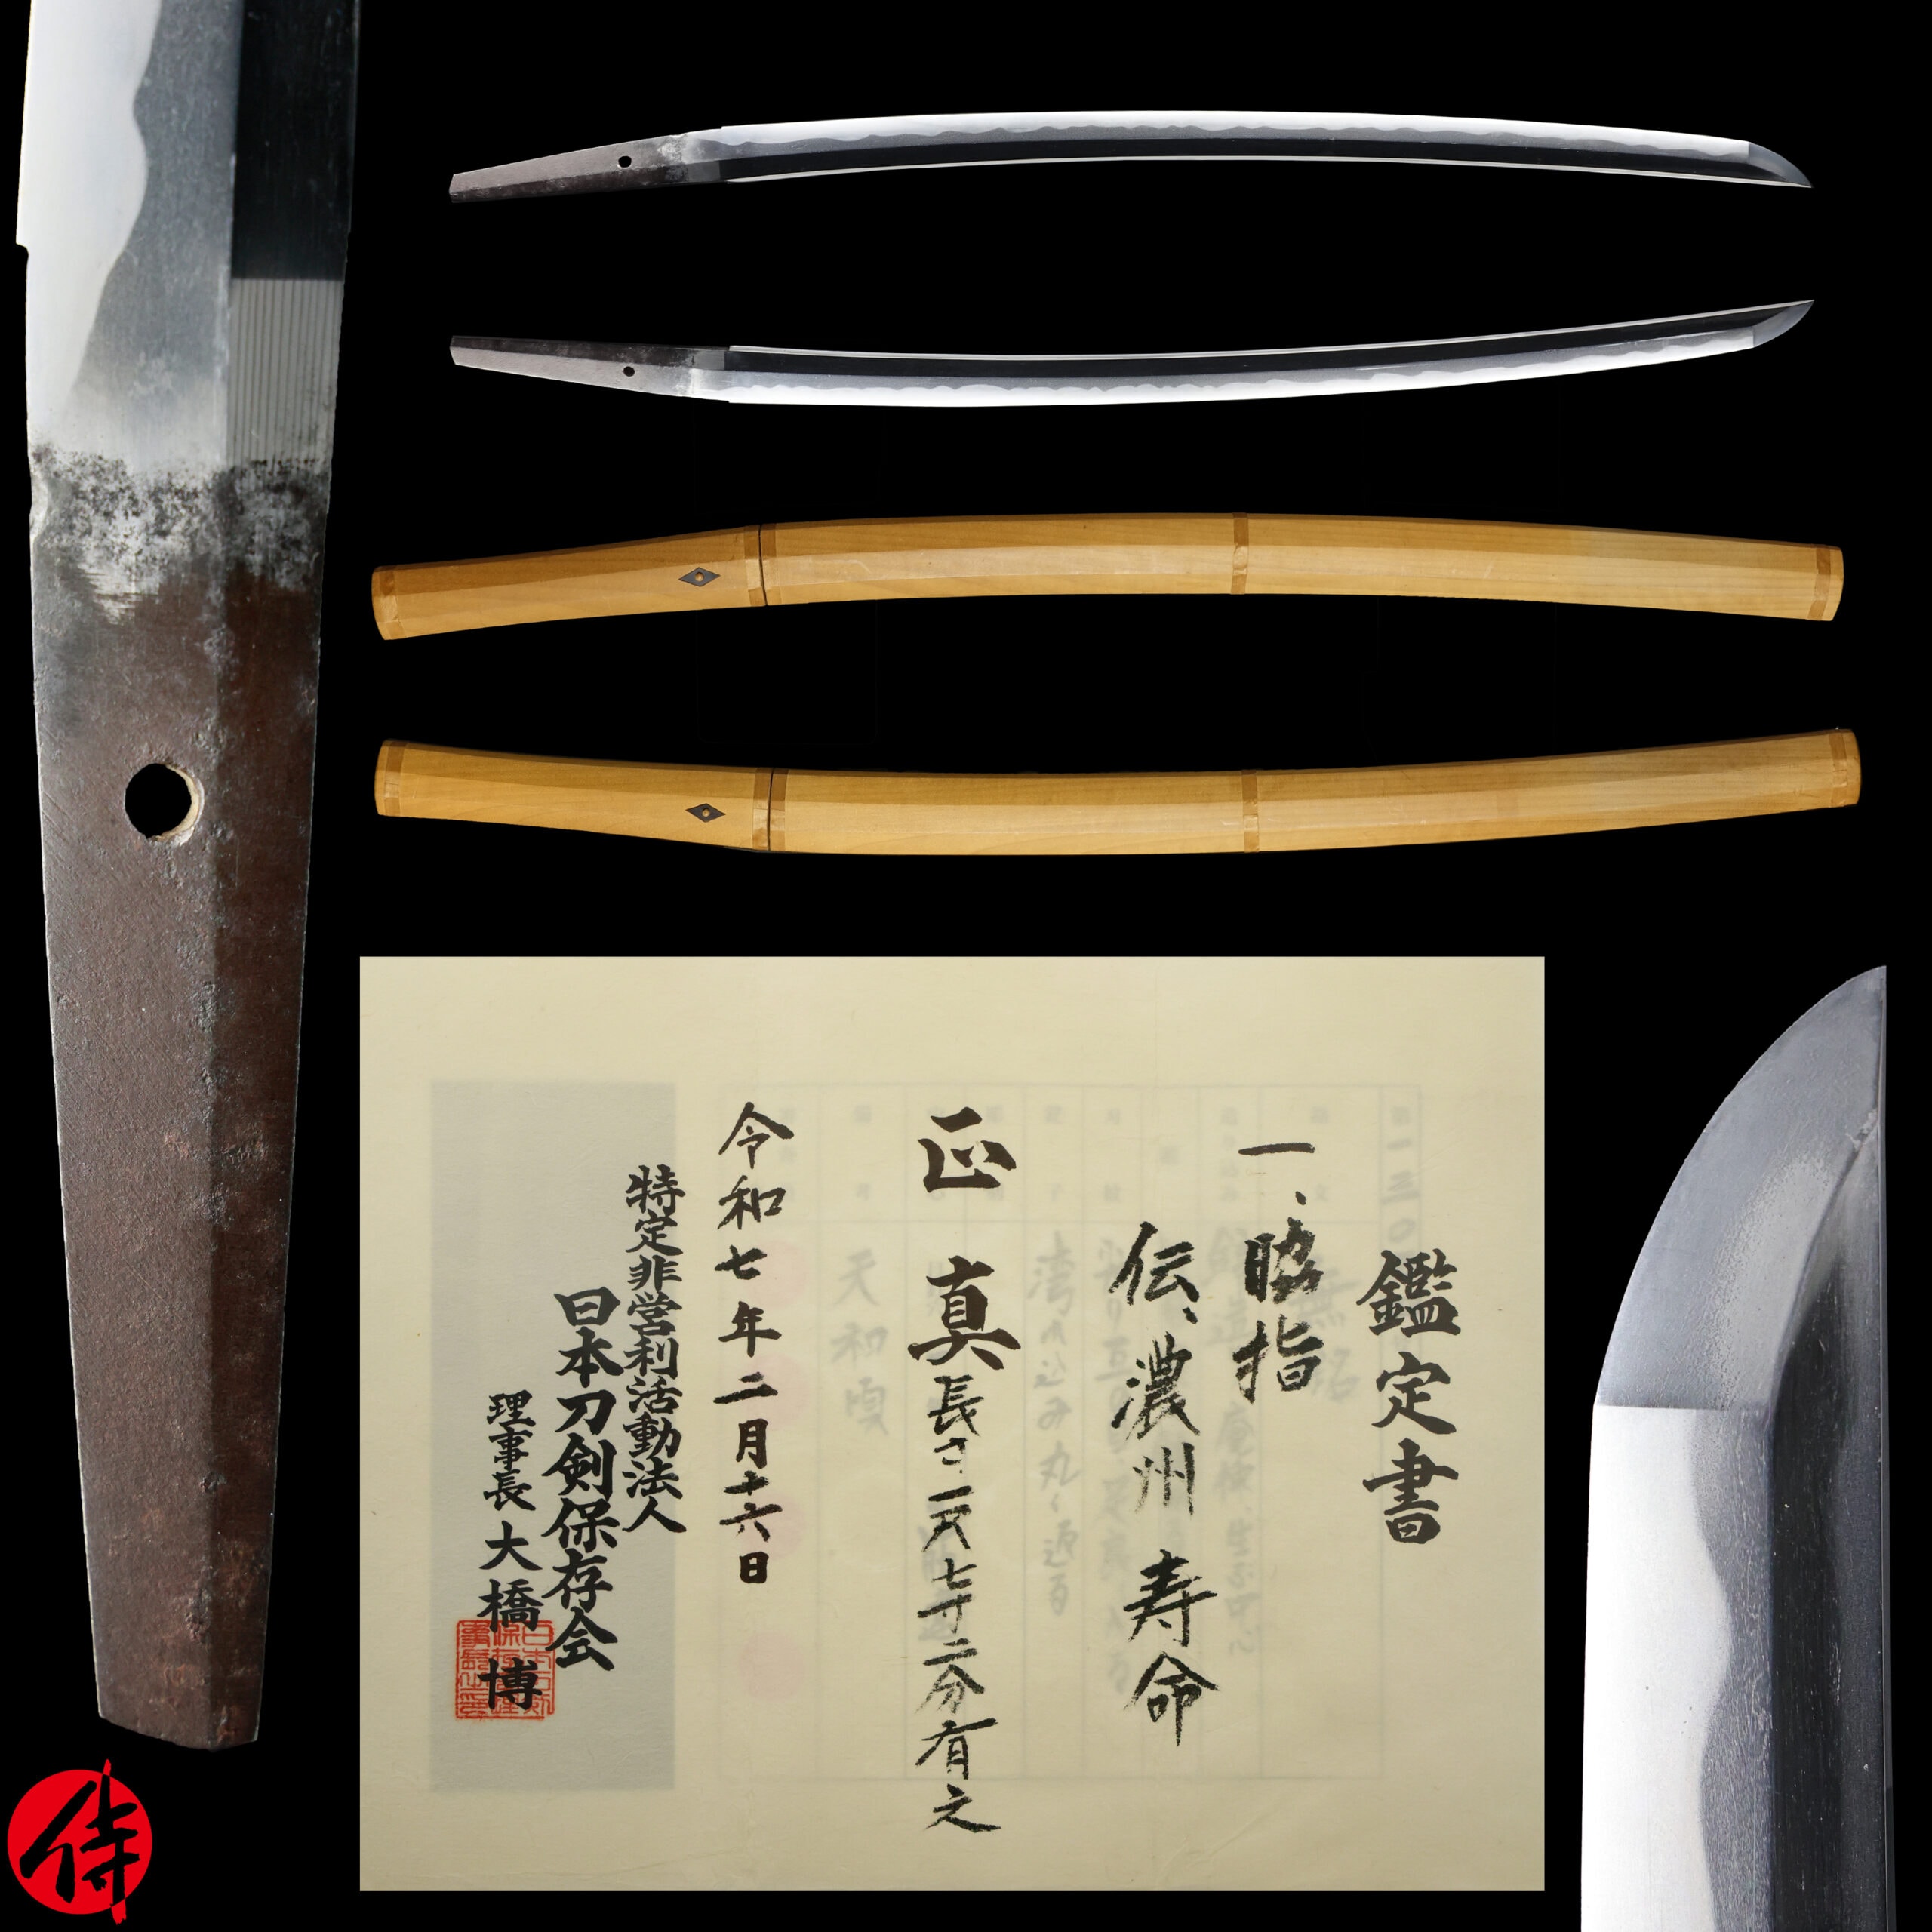 鑑定書
一、脇指
伝、濃州 寿命
正 真 長さ一尺七寸二分有之
令和七年二月十六日
特定非営利活動法人
日本刀剣保存会
理事長 大橋 博
侍